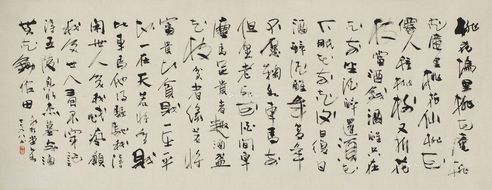 桃花塢里桃花庵桃
花庵里桃花仙桃花
仙人種桃樹又折花
枝當酒錢酒醒只在
花前坐酒醉還須花
下眠花前花後日復日
酒醉酒醒年復年
不願鞠躬車馬前
但願老死花酒間車
塵馬足貴者趣酒盞
花枝貧者緣若將
富貴比貧賤一在平
地一在天若將貧賤
比車馬他得驅馳我得
閑世人笑我忒風顛
我笑世人看不穿記
得五陵豪傑墓無酒
無花鋤作田